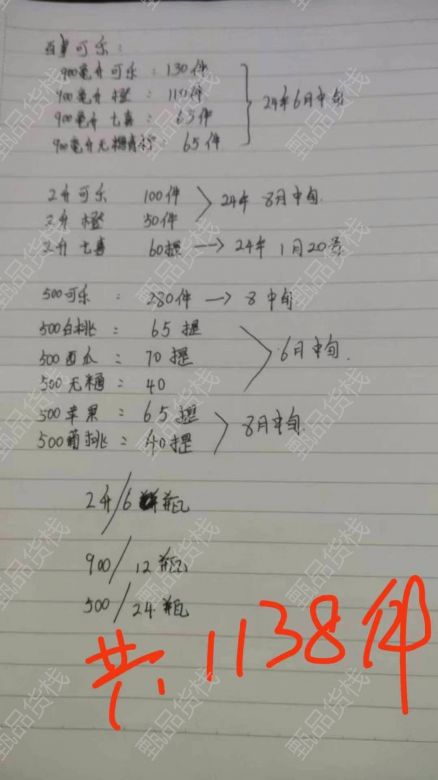 百事可乐:
900毫升可乐:130件
900毫升橙:110件
900毫升七喜:65件
900毫升无糖:65件
24年6月中旬
2升可乐 100件
2升橙 50件
24年8月中旬.
2升七喜 60提 → 24年1月20号
500可乐:280件 → 8中旬
500白桃:65提
500西瓜:70提
500无糖:40
6月中旬.
500苹果:65提
500葡桃:40提
8月中旬.
2升/6瓶
900/12瓶
500/24瓶
共.1138件
甄品货栈